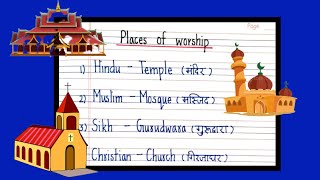 Page
Places of worship
1) Hindu – Temple (मंदिर)
2) Muslim – Mosque (मस्जिद)
3) Sikh – Gurudwara (गुरूद्वारा)
Christian – Church (गिरजाघर)